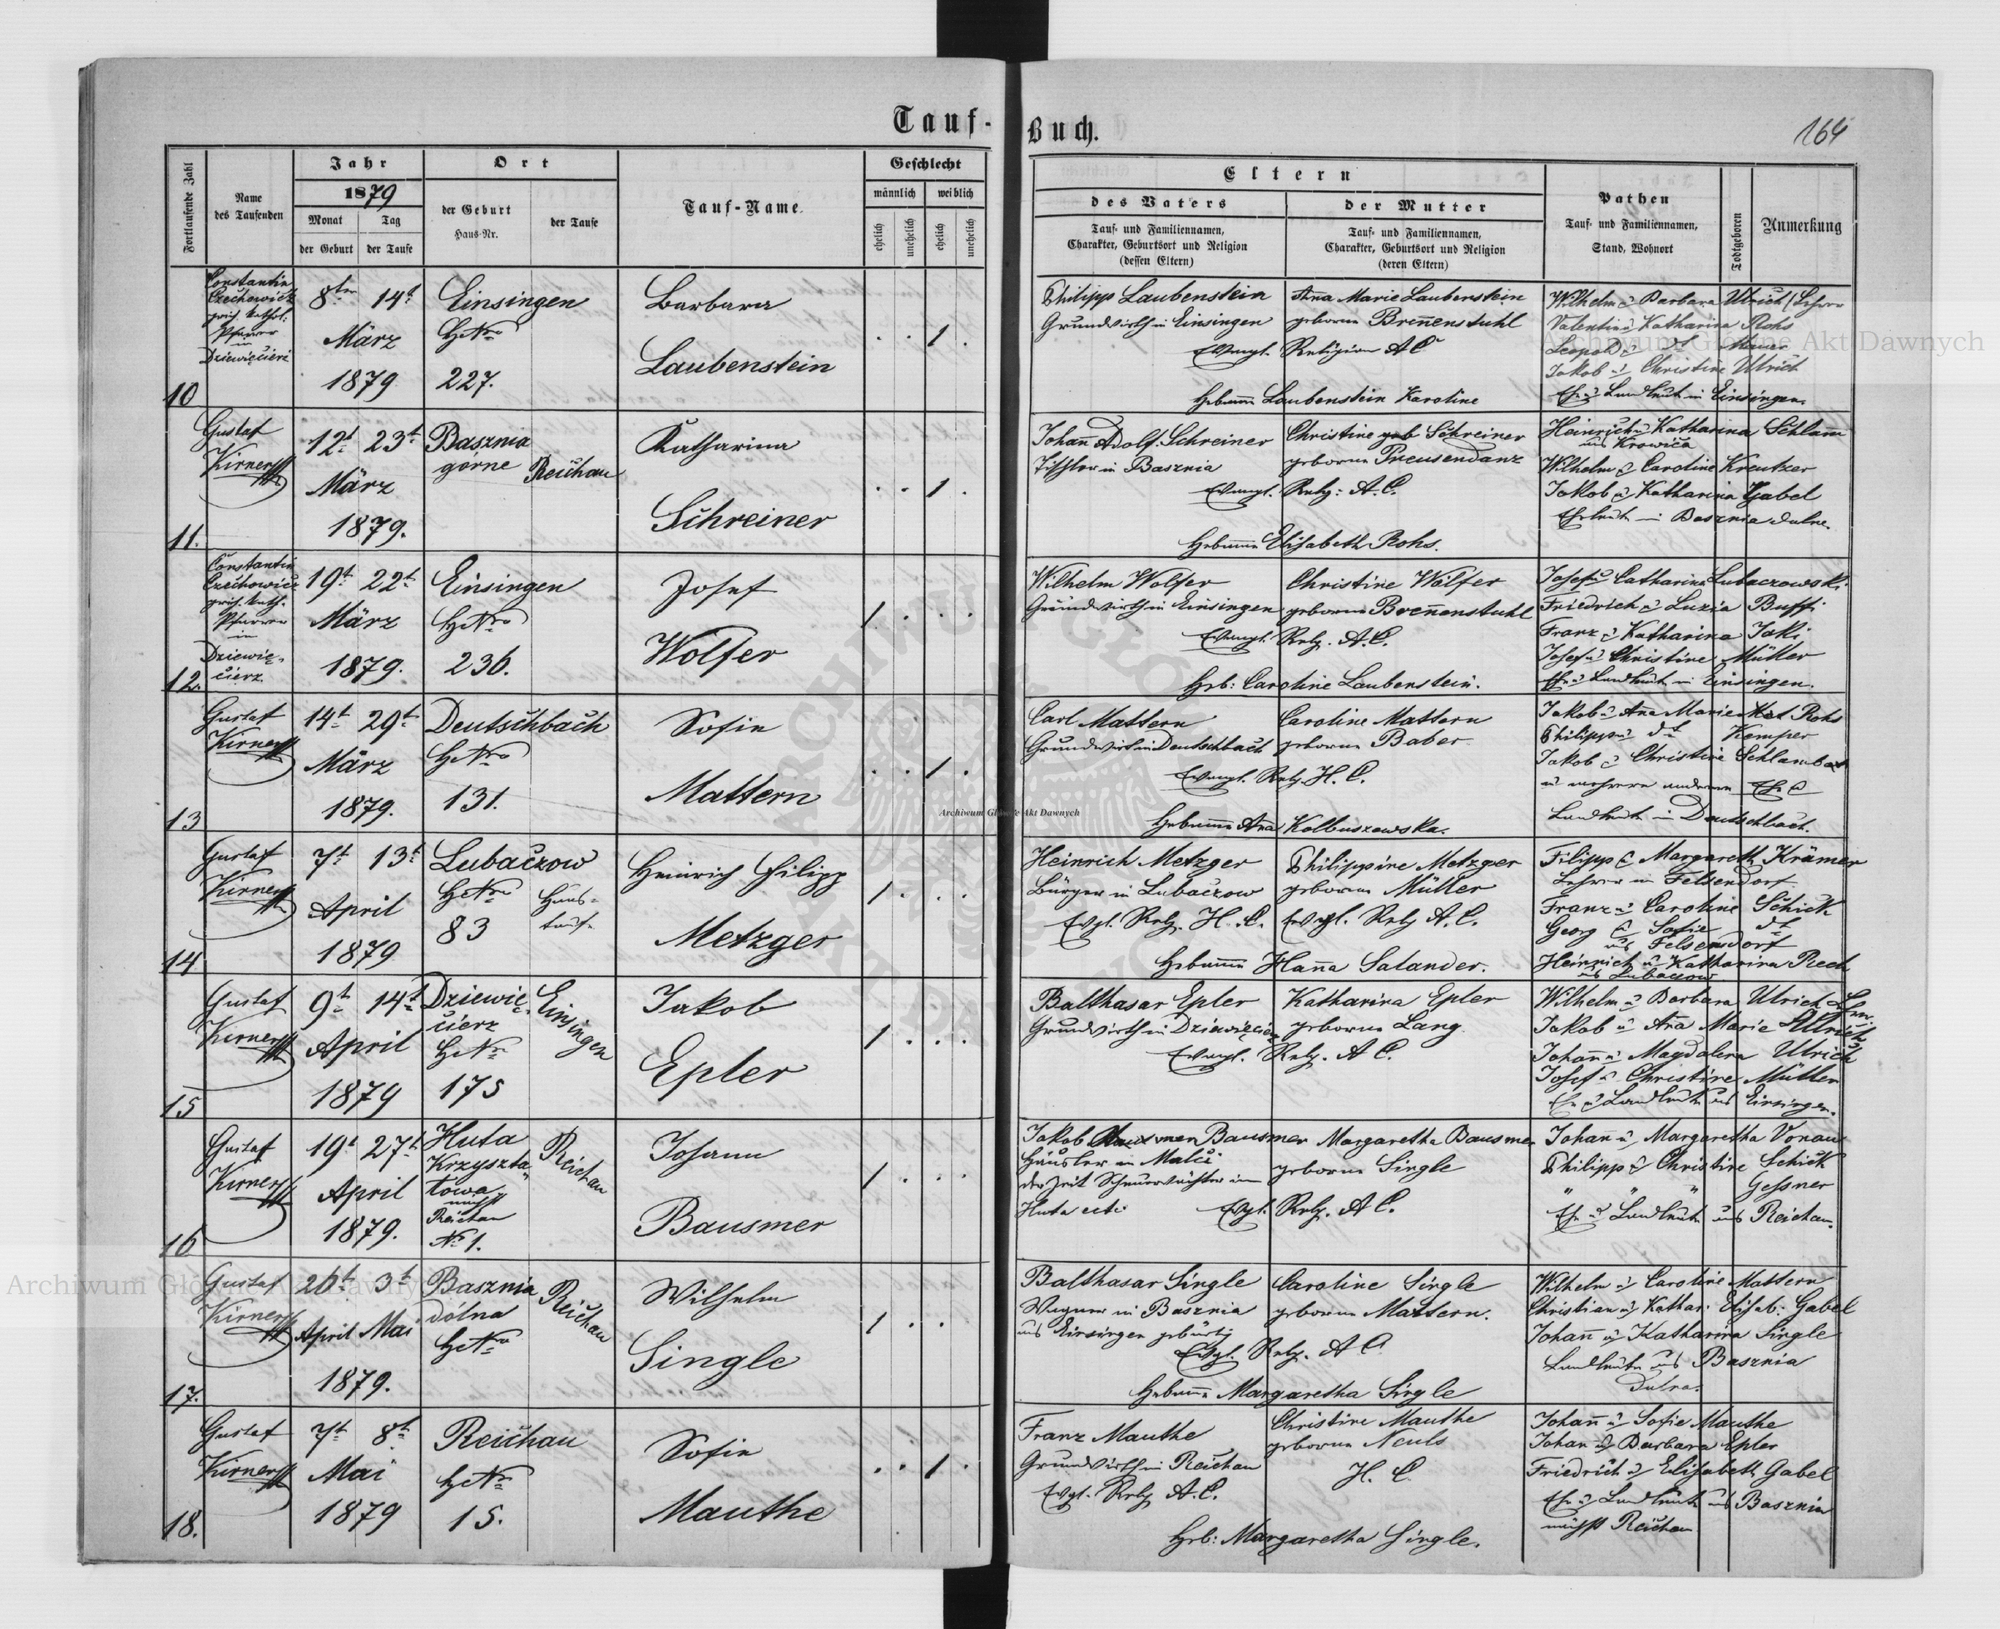 Tauf-Buch.
164
Fortlaufende Zahl
Name
des Taufenden
Jahr
1879
Monat
Tag
der Geburt
der Taufe
Ort
der Geburt
Haus-Nr.
der Taufe
Tauf-Name.
Geschlecht
männlich
weiblich
ehelich
unehelich
ehelich
unehelich
Eltern
des Vaters
Tauf- und Familiennamen,
Charakter, Geburtsort und Religion
(dessen Eltern)
der Mutter
Tauf- und Familiennamen,
Charakter, Geburtsort und Religion
(deren Eltern)
Pathen
Tauf- und Familiennamen,
Stand, Wohnort
Todtgeboren
Anmerkung
10
Constantin
Czechowicz
Pfarrer
in
8ten 14t
März
1879
Einsingen
HNro
227.
Barbara
Laubenstein
1
Philipp Laubenstein
Grundwirth in Einsingen
Anna Marie Laubenstein
geborne Breñenstuhl
Evangl. Religion A C
Hebamme Laubenstein Karoline
Wilhelm u Barbara Ulrich
Valentin u Katharina Rohs
Leopold
Jakob u Christine Ulrich
Ehe u Landleute in Einsingen.
11.
Gustaf
Kirner
12t 23t
März
1879.
Basznia
górne
Reichau
Katharina
Schreiner
1
Johan Adolf Schreiner
Tischler in Basznia
Christine geb Schreiner
geborne Preusendanz
Evangl. Relg: A. C.
Hebamme Elisabeth Rohs.
Heinrich u Katharina Schlamm
aus Krowica
Wilhelm u Caroline Kreutzer
Jakob u Katharina Gabel
Eheleute in Basznia dolne.
12.
Constantin
Czechowicz
Pfarrer
in
Dziewię-
cierz
19t 22t
März
1879.
Einsingen
HNro
236.
Josef
Wolfer
1
Wilhelm Wolfer
Grundwirth in Einsingen
Christine Wolfer
geborne Breñenstuhl
Evangl. Relg. A. C.
Heb: Caroline Laubenstein.
Josef u Catharina Lubaczowski
Friedrich u Luzia Buffi
Franz u Katharina Jaki
Josef u Christine Müller
Ehe u Landleute in Einsingen.
13
Gustaf
Kirner
14t 29t
März
1879.
Deutschbach
HNro
131.
Sofie
Mattern
1
Carl Mattern
Grundwirth in Deutschbach
Caroline Mattern
geborne Baber
Evangl. Relg. H. C.
Hebamme Aña Kolbuszowska.
Jakob u Aña Marie Rohs
Philipp u dt Kemper
Jakob u Christine
u mehrere anderen Ehe &
Landleute in Deutschbach.
14
Gustaf
Kirner
7t 13t
April
1879
Lubaczow
HNro
83
Haus-
taufe
Heinrich Filipp
Metzger
1
Heinrich Metzger
Bürger in Lubaczow
Evgl. Relg. H. C.
Philippine Metzger
geborne Müller
Evgl. Relg A. C.
Hebamme Haña Salander.
Filipp & Margareth Krämer
Lehrer in Felsendorf
Franz u Caroline Schick
Georg & Sofie dt
aus Felsendorf
Heinrich u Katharina Rech
aus Lubaczow
15
Gustaf
Kirner
9t 14t
April
1879
Dziewię-
cierz
HNro
175
Einsingen
Jakob
Epler
1
Balthasar Epler
Grundwirth in Dziewięcierz
Katharina Epler
geborne Lang
Evangl. Relg. A C.
Wilhelm u Barbara Ulrich
Jakob u Aña Marie Ulrich
Johañ u Magdalena Ulrich
Josef u Christine Müller
Ehe u Landleute aus Einsingen.
16
Gustaf
Kirner
19t 27t
April
1879.
Huta
Kryszta-
towa
nächst
Reichau
No 1.
Reichau
Johann
Bausmer
1
Jakob Bausmer
Häusler in
Margaretha Bausmer
geborne Single
Evgl. Relg. A C.
Johañ u Margaretha Vonau
Philipp u Christine Schick
" " " Gessner
Ehe u Landleute aus Reichau.
17.
Gustaf
Kirner
26t 3t
April Mai
1879.
Basznia
dolna
HNro
Reichau
Wilhelm
Single
1
Balthasar Single
Wagner in Basznia
aus Einsingen gebürtig
Caroline Single
geborne Mattern.
Evgl. Relg. A C
Hebamme Margaretha Single
Wilhelm u Caroline Mattern
Christian u Kathar. Elisab. Gabel
Johañ u Katharina Single
Landleute aus Basznia
Dolna.
18.
Gustaf
Kirner
7t 8t
Mai
1879
Reichau
HNro
15.
Sofie
Mauthe
1
Franz Mauthe
Grundwirth in Reichau
Evgl. Relg A. C.
Christine Mauthe
geborne Neuls
H. C.
Heb: Margaretha Single.
Johañ u Sofie Mauthe
Johan u Barbara Epler
Friedrich u Elisabeth Gabel
Ehe u Landleute aus Basznia
nächst Reichau
Archiwum Główne Akt Dawnych
Archiwum Główne Akt Dawnych
Archiwum Główne Akt Dawnych